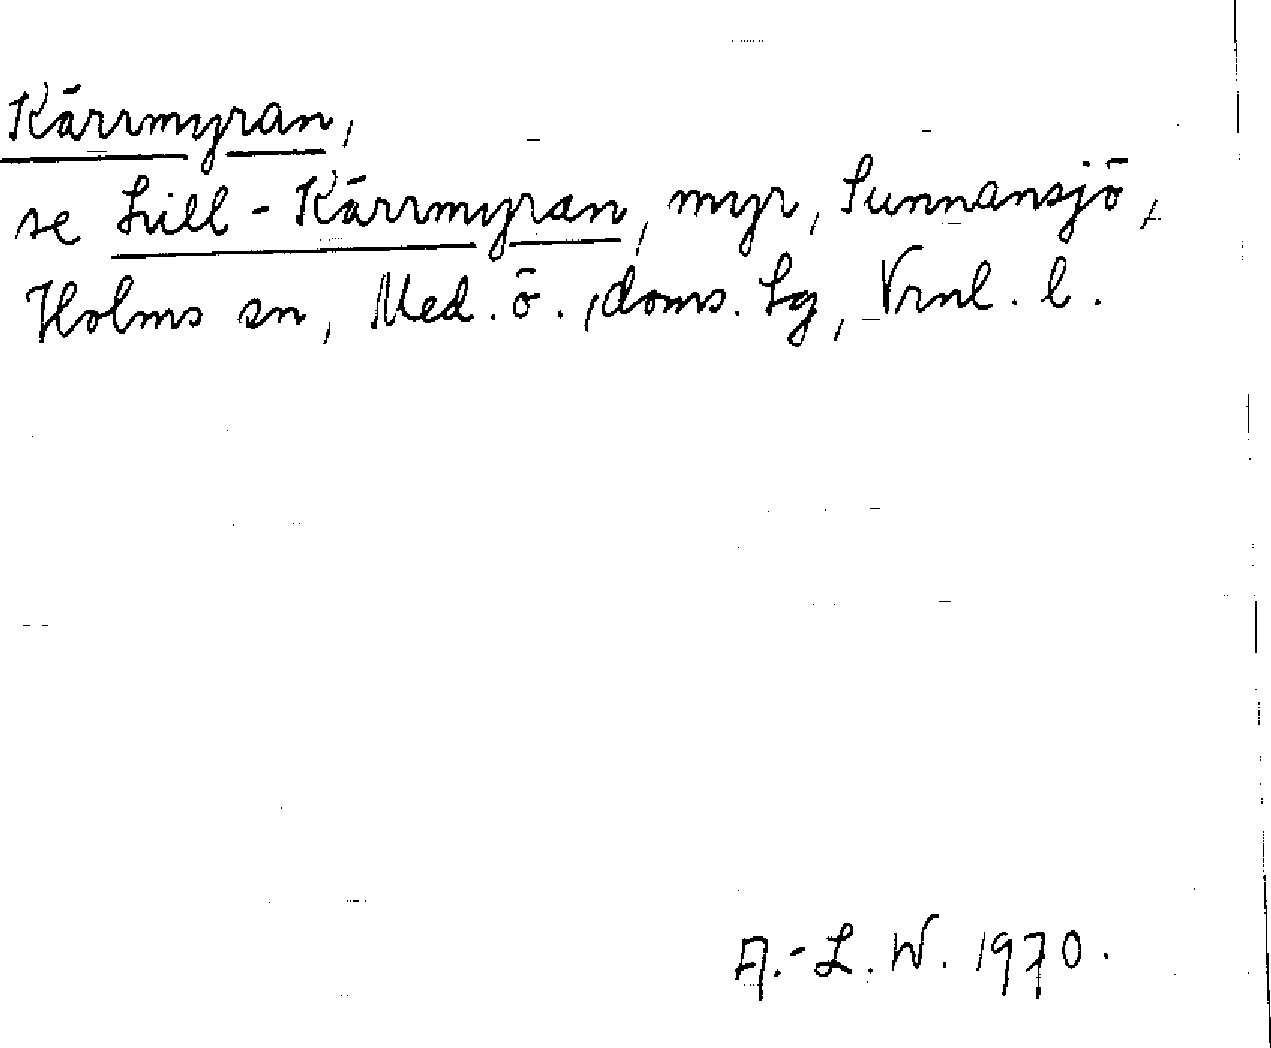 Kärrmyran,
se Lill-Kärrmyran, myr, Sunnansjö,
Holms sn, Med. ö., doms. Lg, Vrnl. l.
A.-L. W. 1970.